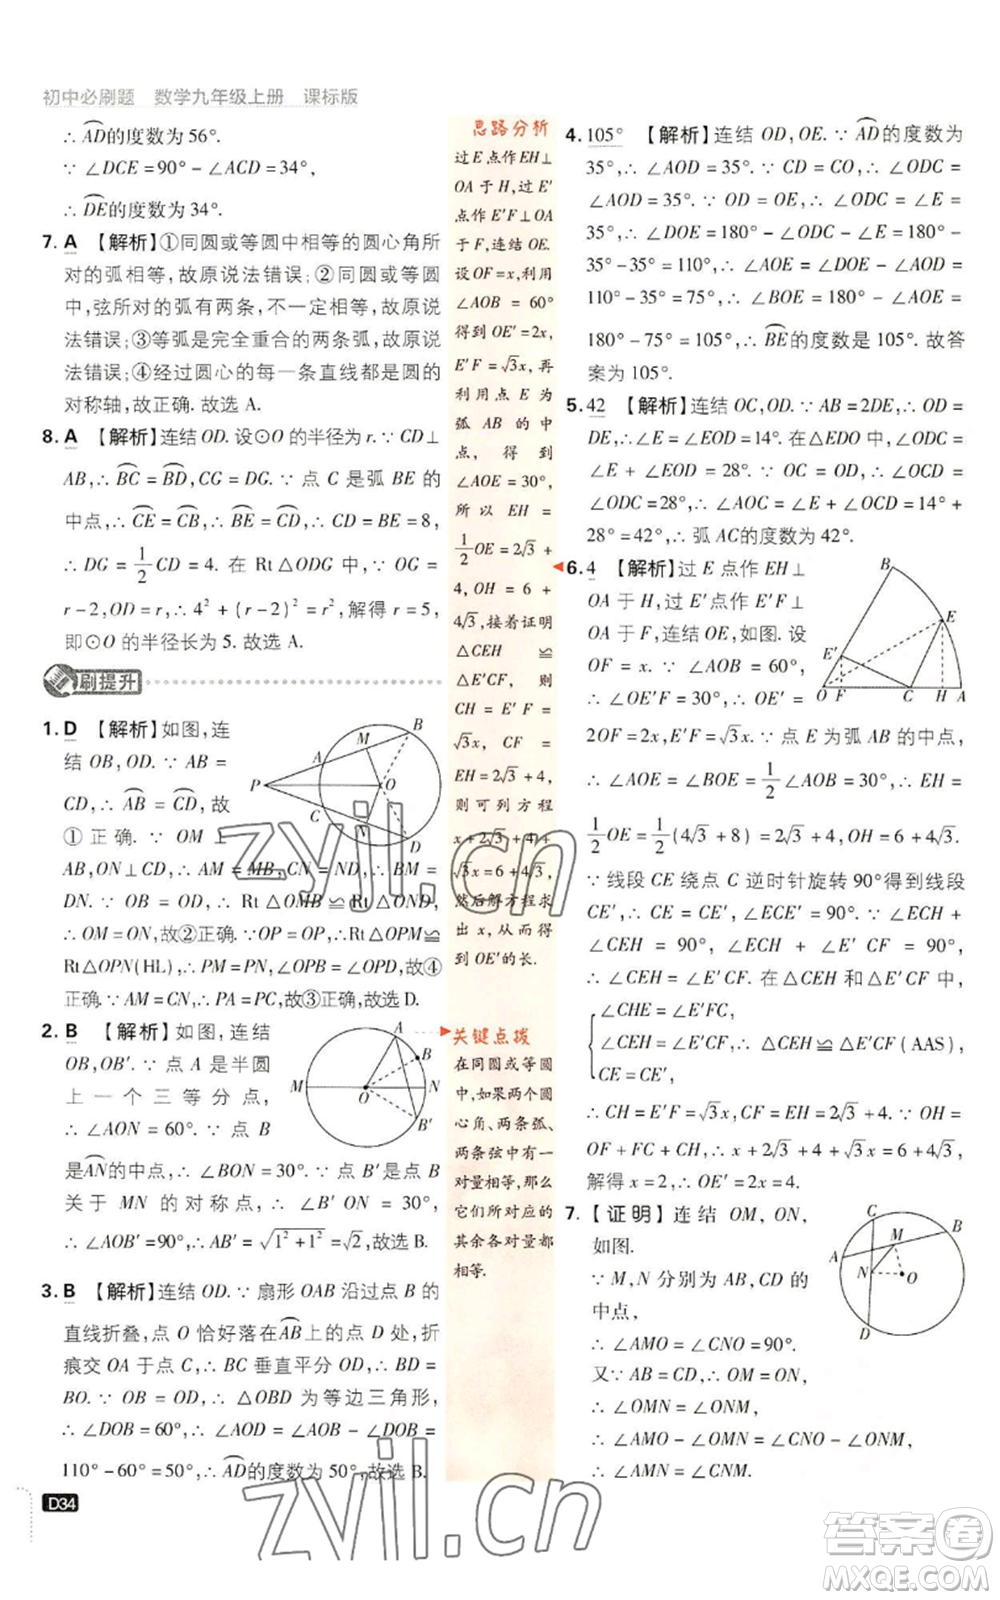 初中必刷题 数学九年级上册 课标版
∴ AD的度数为56°.
∵ ∠DCE=90°-∠ACD=34°,
∴ DE的度数为34°.
7. A 【解析】①同圆或等圆中相等的圆心角所
对的弧相等,故原说法错误;②同圆或等圆
中,弦所对的弧有两条,不一定相等,故原说
法错误;③等弧是完全重合的两条弧,故原说
法错误;④经过圆心的每一条直线都是圆的
对称轴,故正确.故选A.
8. A 【解析】连结OD.设⊙O的半径为r.∵ CD⊥
AB,∴ BC=BD,CG=DG.∵ 点C是弧BE的
中点,∴ CE=CB,∴ BE=CD,∴ CD=BE=8,
∴ DG=1/2CD=4.在Rt△ODG中,∵ OG=
r-2,OD=r,∴ 4²+(r-2)²=r²,解得r=5,
即⊙O的半径长为5.故选A.
刷提升
1. D 【解析】如图,连
结OB,OD.∵ AB=
CD,∴ AB=CD,故
①正确.∵ OM⊥
AB,ON⊥CD,∴ AM=MB,CN=ND,∴ BM=
DN.∵ OB=OD,∴ Rt△OMB≌Rt△OND,
∴ OM=ON,故②正确.∵OP=OP,∴ Rt△OPM≌
Rt△OPN(HL),∴ PM=PN,∠OPB=∠OPD,故④
正确.∵ AM=CN,∴ PA=PC,故③正确.故选D.
P
A
M
B
O
C
N
D
2. B 【解析】如图,连结
OB,OB′.∵ 点A是半圆
上一个三等分点,
∴ ∠AON=60°.∵ 点B
是AN的中点,∴ ∠BON=30°.∵ 点B′是点B
关于MN的对称点,∴ ∠B′ON=30°,
∴ ∠AOB′=90°,∴ AB′=√1²+1²=√2,故选B.
M
A
B
N
O
B′
3. B 【解析】连结OD.∵ 扇形OAB沿过点B的
直线折叠,点O恰好落在AB上的点D处,折
痕交OA于点C,∴ BC垂直平分OD,∴ BD=
BO.∵ OB=OD,∴ △OBD为等边三角形,
∴ ∠DOB=60°,∴ ∠AOD=∠AOB-∠DOB=
110°-60°=50°,∴ AD的度数为50°,故选B.
D34
思路分析
过E点作EH⊥
OA于H,过E′
点作E′F⊥OA
于F,连结OE.
设OF=x,利用
∠AOB=60°
得到OE′=2x,
E′F=√3x,再
利用点E为
弧AB的中
点,得到
∠AOE=30°,
所以EH=
1/2OE=2√3+
4,OH=6+
4√3,接着证明
△CEH≌
△E′CF,则
CH=E′F=
√3x,CF=
EH=2√3+4,
则可列方程
x+2√3+4+
√3x=6+4√3,
然后解方程求
出x,从而得
到OE′的长.
关键点拨
在同圆或等圆
中,如果两个圆
心角、两条弧、
两条弦中有一
对量相等,那么
它们所对应的
其余各对量都
相等.
4. 105° 【解析】连结OD,OE.∵ AD的度数为
35°,∴ ∠AOD=35°.∵ CD=CO,∴ ∠ODC=
∠AOD=35°.∵ OD=OE,∴ ∠ODC=∠E=
35°,∴ ∠DOE=180°-∠ODC-∠E=180°-
35°-35°=110°,∴ ∠AOE=∠DOE-∠AOD=
110°-35°=75°,∴ ∠BOE=180°-∠AOE=
180°-75°=105°,∴ BE的度数是105°.故答
案为105°.
5. 42 【解析】连结OC,OD.∵ AB=2DE,∴ OD=
DE,∴∠E=∠EOD=14°.在△EDO中,∠ODC=
∠E+∠EOD=28°.∵ OC=OD,∴ ∠OCD=
∠ODC=28°,∴ ∠AOC=∠E+∠OCD=14°+
28°=42°,∴ 弧AC的度数为42°.
6. 4 【解析】过E点作EH⊥
OA于H,过E′点作E′F⊥
OA于F,连结OE,如图.设
OF=x.∵ ∠AOB=60°,
∴ ∠OE′F=30°,∴ OE′=
2OF=2x,E′F=√3x.∵ 点E为弧AB的中点,
∴ ∠AOE=∠BOE=1/2∠AOB=30°,∴ EH=
1/2OE=1/2(4√3+8)=2√3+4,OH=6+4√3.
∵ 线段CE绕点C逆时针旋转90°得到线段
CE′,∴ CE′=CE,∠ECE′=90°.∵ ∠ECH+
∠CEH=90°,∠ECH+∠E′CF=90°,
∴ ∠CEH=∠E′CF.在△CEH和△E′CF中,
∠CHE=∠E′FC,
∠CEH=∠E′CF,∴ △CEH≌△E′CF(AAS),
CE=E′C,
∴ CH=E′F=√3x,CF=EH=2√3+4.∵ OH=
OF+FC+CH,∴ x+2√3+4+√3x=6+4√3,
解得x=2,∴ OE′=2x=4.
B
E
E′
O
F
C
H
A
7. 【证明】连结OM,ON,
如图.
∵ M,N分别为AB,CD的
中点,
∴ ∠AMO=∠CNO=90°.
又∵ AB=CD,∴ OM=ON,
∴ ∠OMN=∠ONM,
∴ ∠AMO-∠OMN=∠CNO-∠ONM,
∴ ∠AMN=∠CNM.
C
M
B
A
N
O
D
zyjl.cn
zyjl.cn
答案圈
MXQE.COM